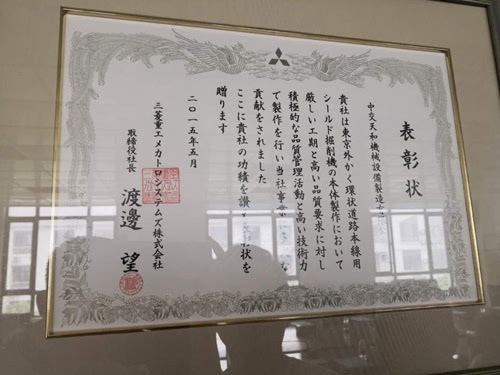 表彰状
中交天和機械設備製造
貴社は東京外かく環状道路本線用
シールド掘削機の本体製作において
厳しい工期と高い品質要求に対し
積極的な品質管理活動と高い技術力
で製作を行い当社事業
貢献をされました
ここに貴社の功績を讃 状を
贈ります
二〇一五年五月
三菱重工メカトロシステムズ株式会社
取締役社長 渡邊 望